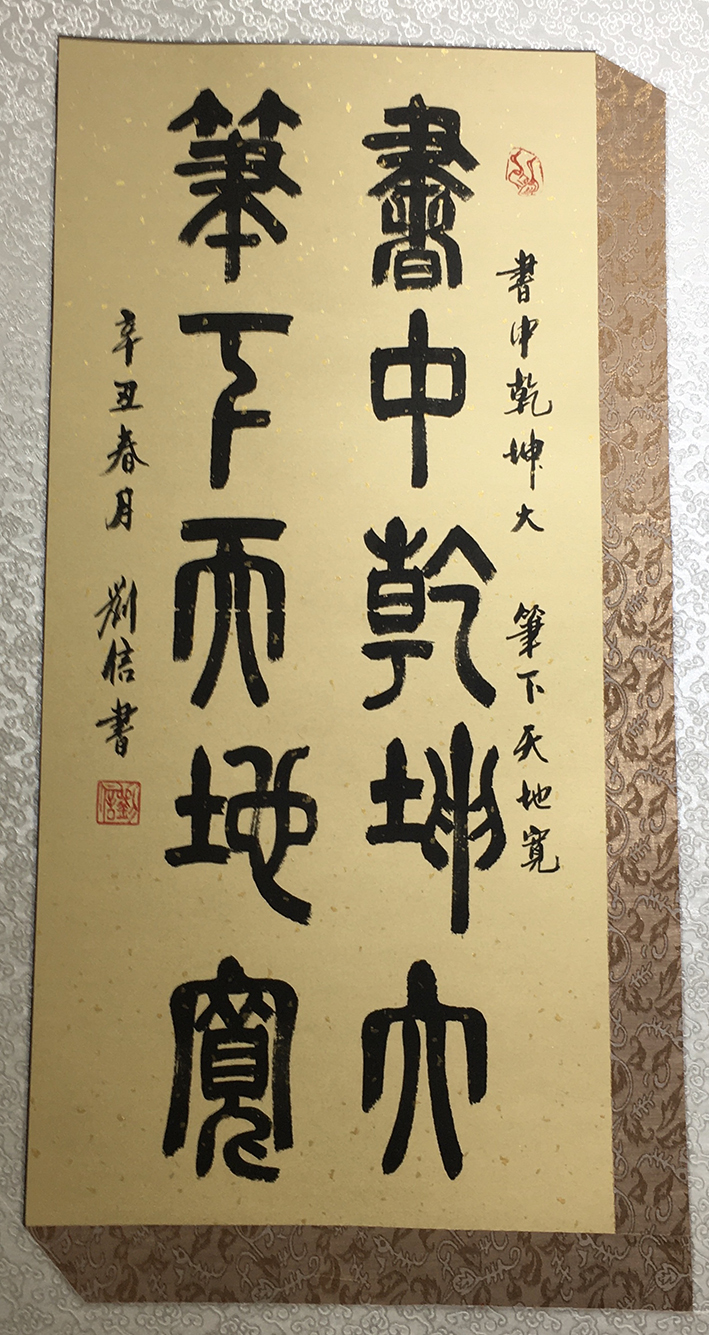 書中乾坤大 筆下天地寬
書中乾坤大
筆下天地寬
辛丑春月 劉信書
劉信